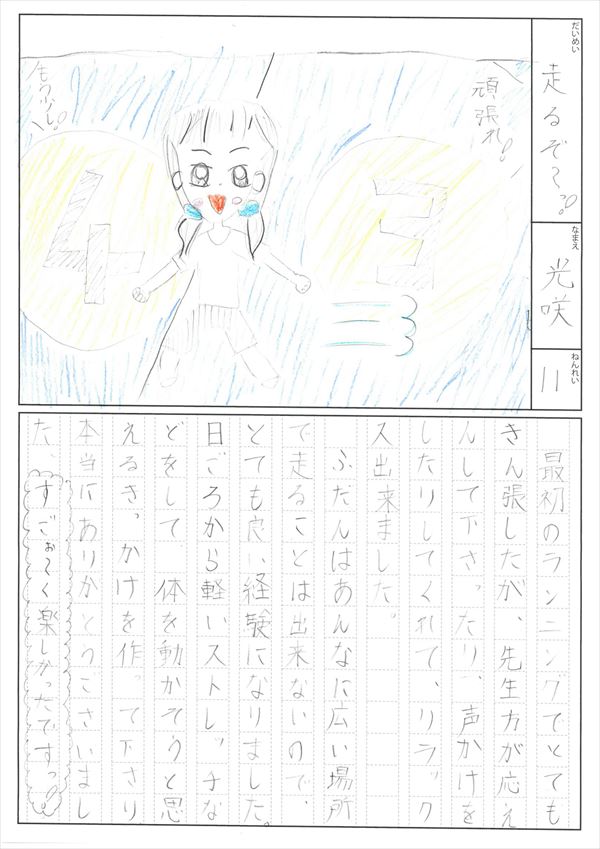 だいめい
走るぞ〜!!
なまえ
光咲
ねんれい
11
頑張れ!
もう少し!!
4
3
最初のランニングでとても
きん張したが、先生方が応え
んして下さったり、声かけを
したりしてくれて、リラック
ス出来ました。
ふだんはあんなに広い場所
で走ることは出来ないので、
とても良い経験になりました。
日ごろから軽いストレッチな
どをして体を動かそうと思
えるきっかけを作って下さり
本当にありがとうございまし
た、
すごぉ〜く楽しかったですっ!!